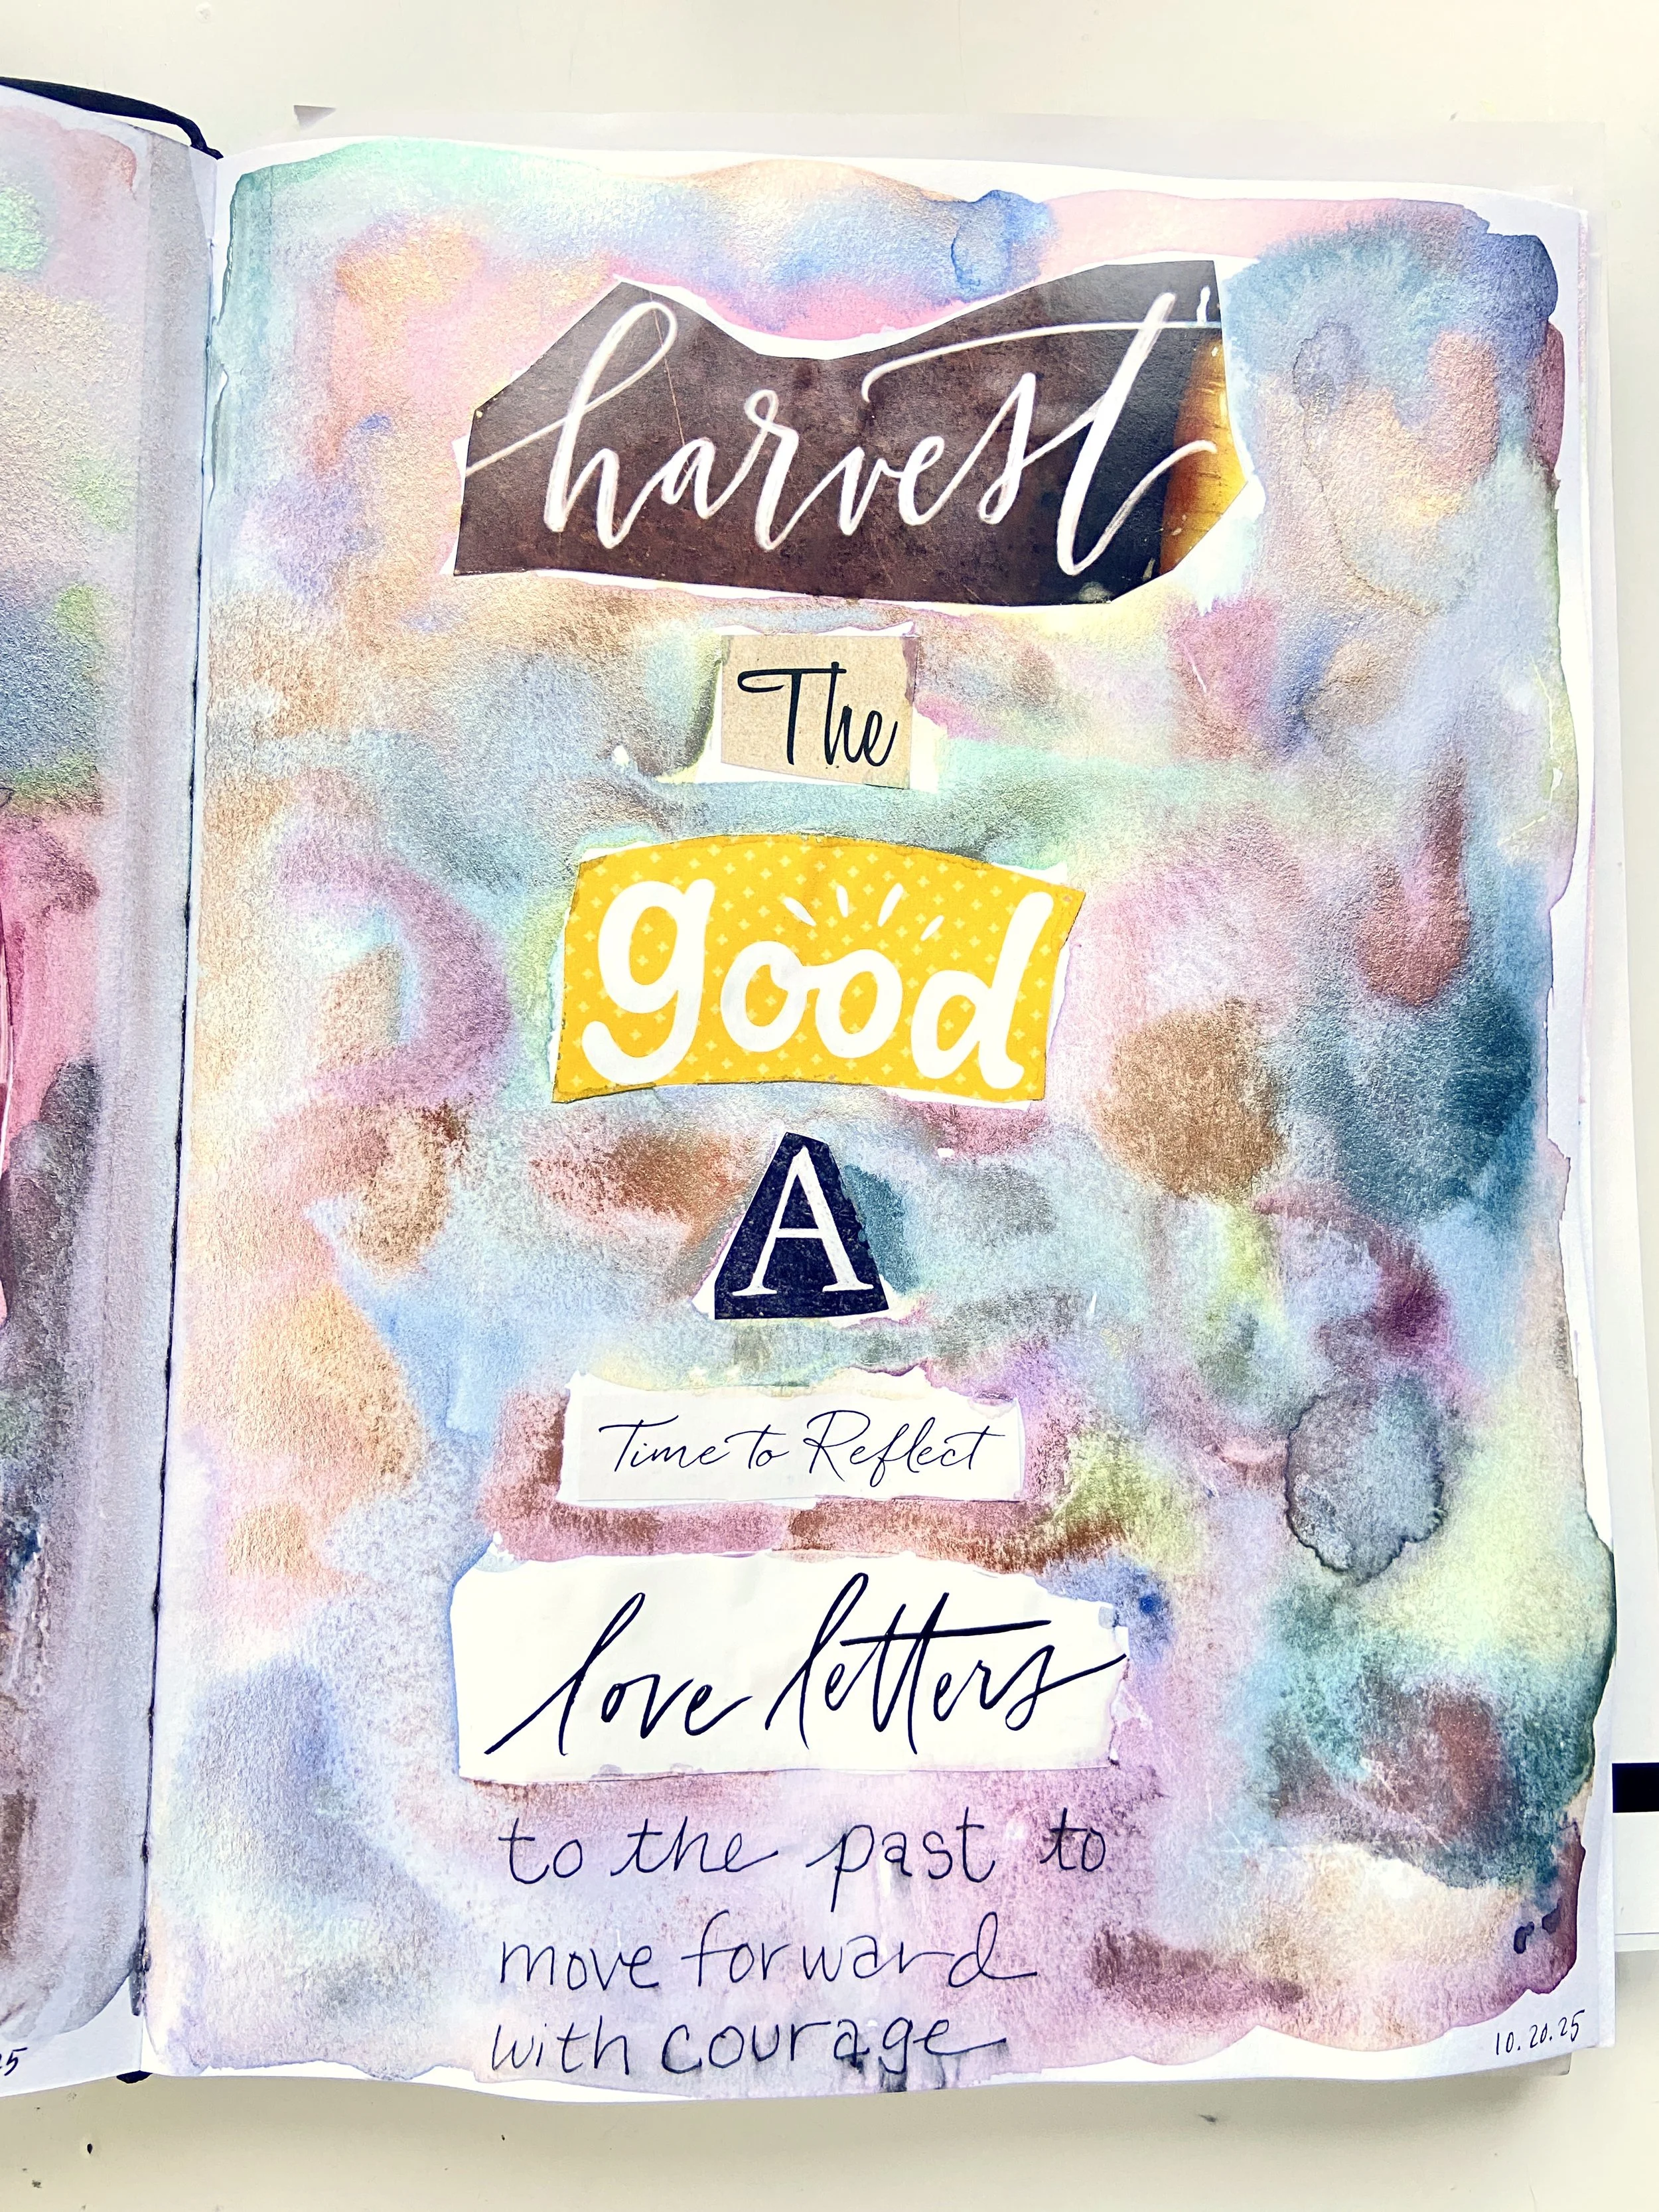 harvest
The
good
A
Time to Reflect
love letters
to the past to
move forward
with courage
10.20.25
25